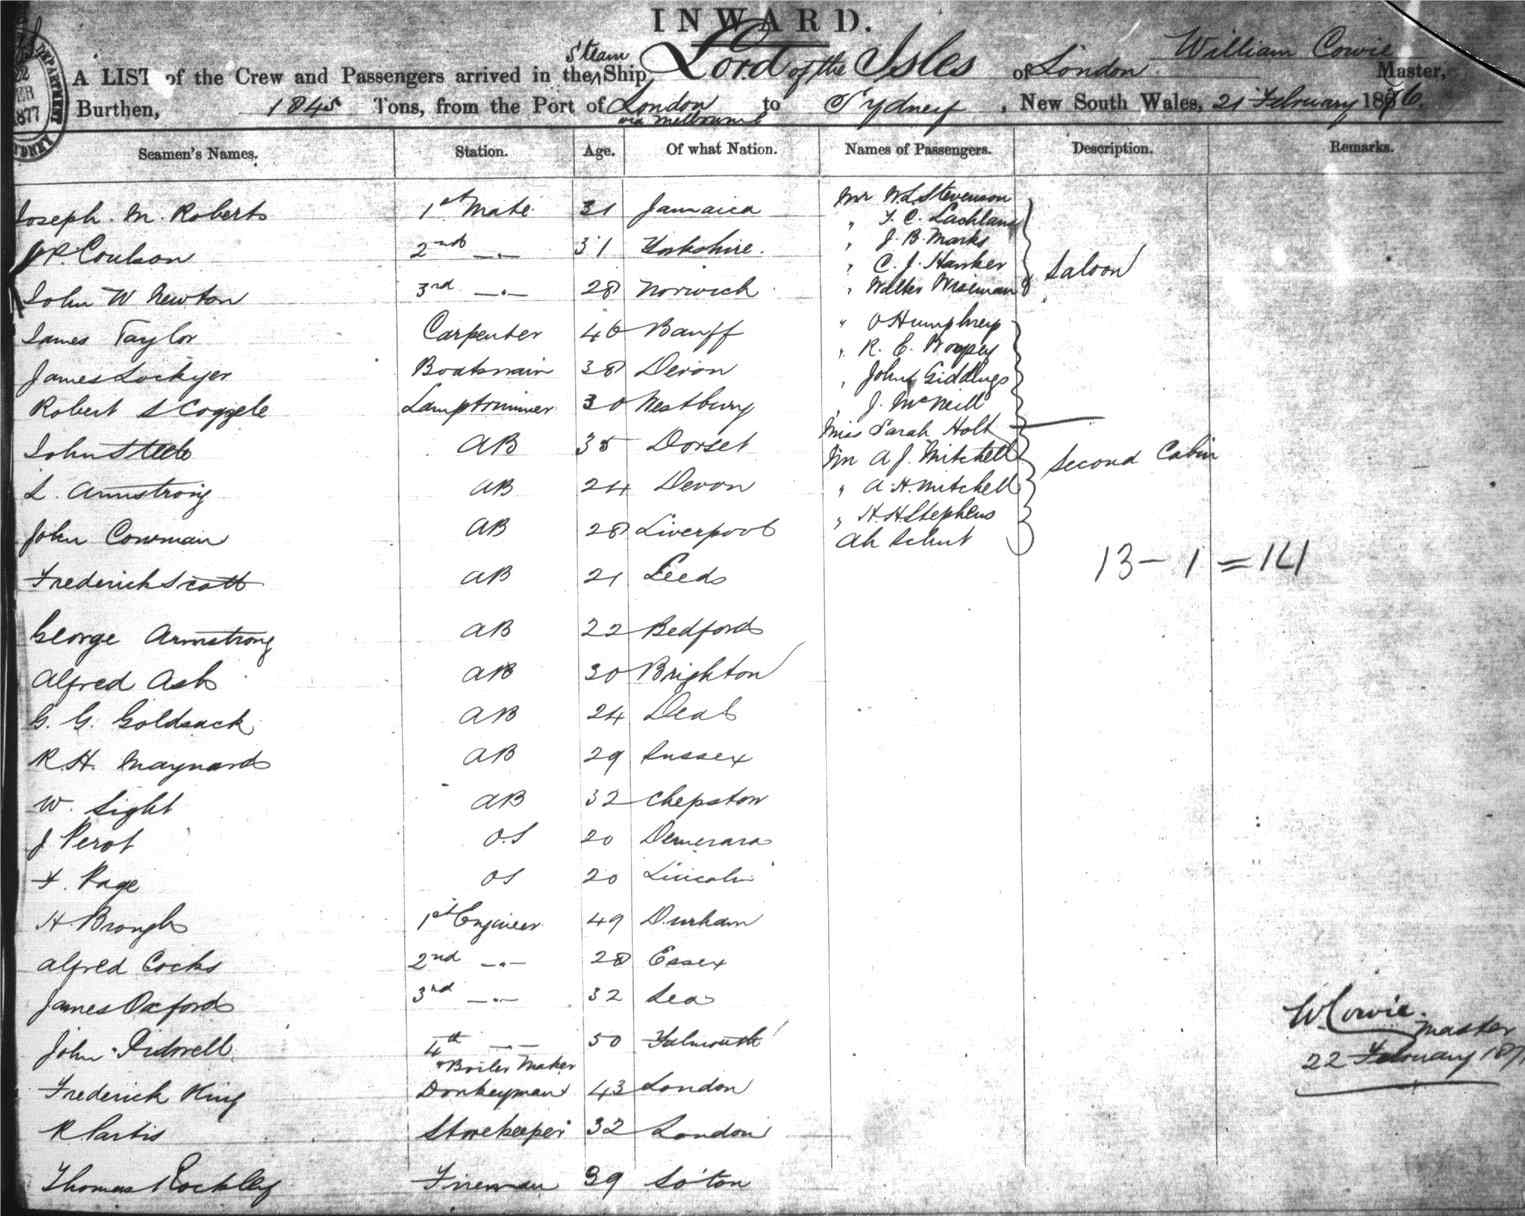 INWARD.
William Cowie
Steam
A LIST of the Crew and Passengers arrived in the Ship Lord of the Isles of London Master,
Burthen, 1845 Tons, from the Port of London to Sydney, New South Wales, 21 February 1876.
via Melbourne
Seamen's Names. Station. Age. Of what Nation. Names of Passengers. Description. Remarks.
Joseph. M. Roberts 1st Mate 31 Jamaica
Coulson 2nd —"— 31 Yorkshire.
John W Newton 3rd —"— 28 Norwich
James Taylor Carpenter 46 Banff
James Lockyer Boatswain 38 Devon
Robert S Coggele Lamptrimmer 30 Westbury
John Steele AB 35 Dorset
L. Armstrong AB 24 Devon
John Cowman AB 28 Liverpool
Frederick Scott AB 21 Leeds
George Armstrong AB 22 Bedford
Alfred Ash AB 30 Brighton
G. G. Goldsack AB 24 Deal
R H. Maynard AB 29 Sussex
W. Light AB 32 Chepstow
J Perot O.S 20 Demerara
F. Page OS 20 Lincoln
H. Brough 1st Engineer 49 Durham
Alfred Cocks 2nd —"— 28 Essex
James Oxford 3rd —"— 32 Sea
John Tidwell 4th —"— 50 Falmouth
& Boiler Maker
Frederick King Donkeyman 43 London
R Partis Storekeeper 32 London
Thomas Rockley Fireman 39 So'ton
Mr W L Stevenson
" T. C. Lachlan
" J. B. Marks
" C. J. Hawker
" Walter Wiseman
Saloon
" O Humphrey
" R. C.
" John Giddings
" J. McNeill
Miss Sarah Holt
Mr A J. Mitchell
" A. H. Mitchell
" H. H Stephens
Ah Schut
Second Cabin
13 - 1 = 14
W Cowie.
Master
22 February 187